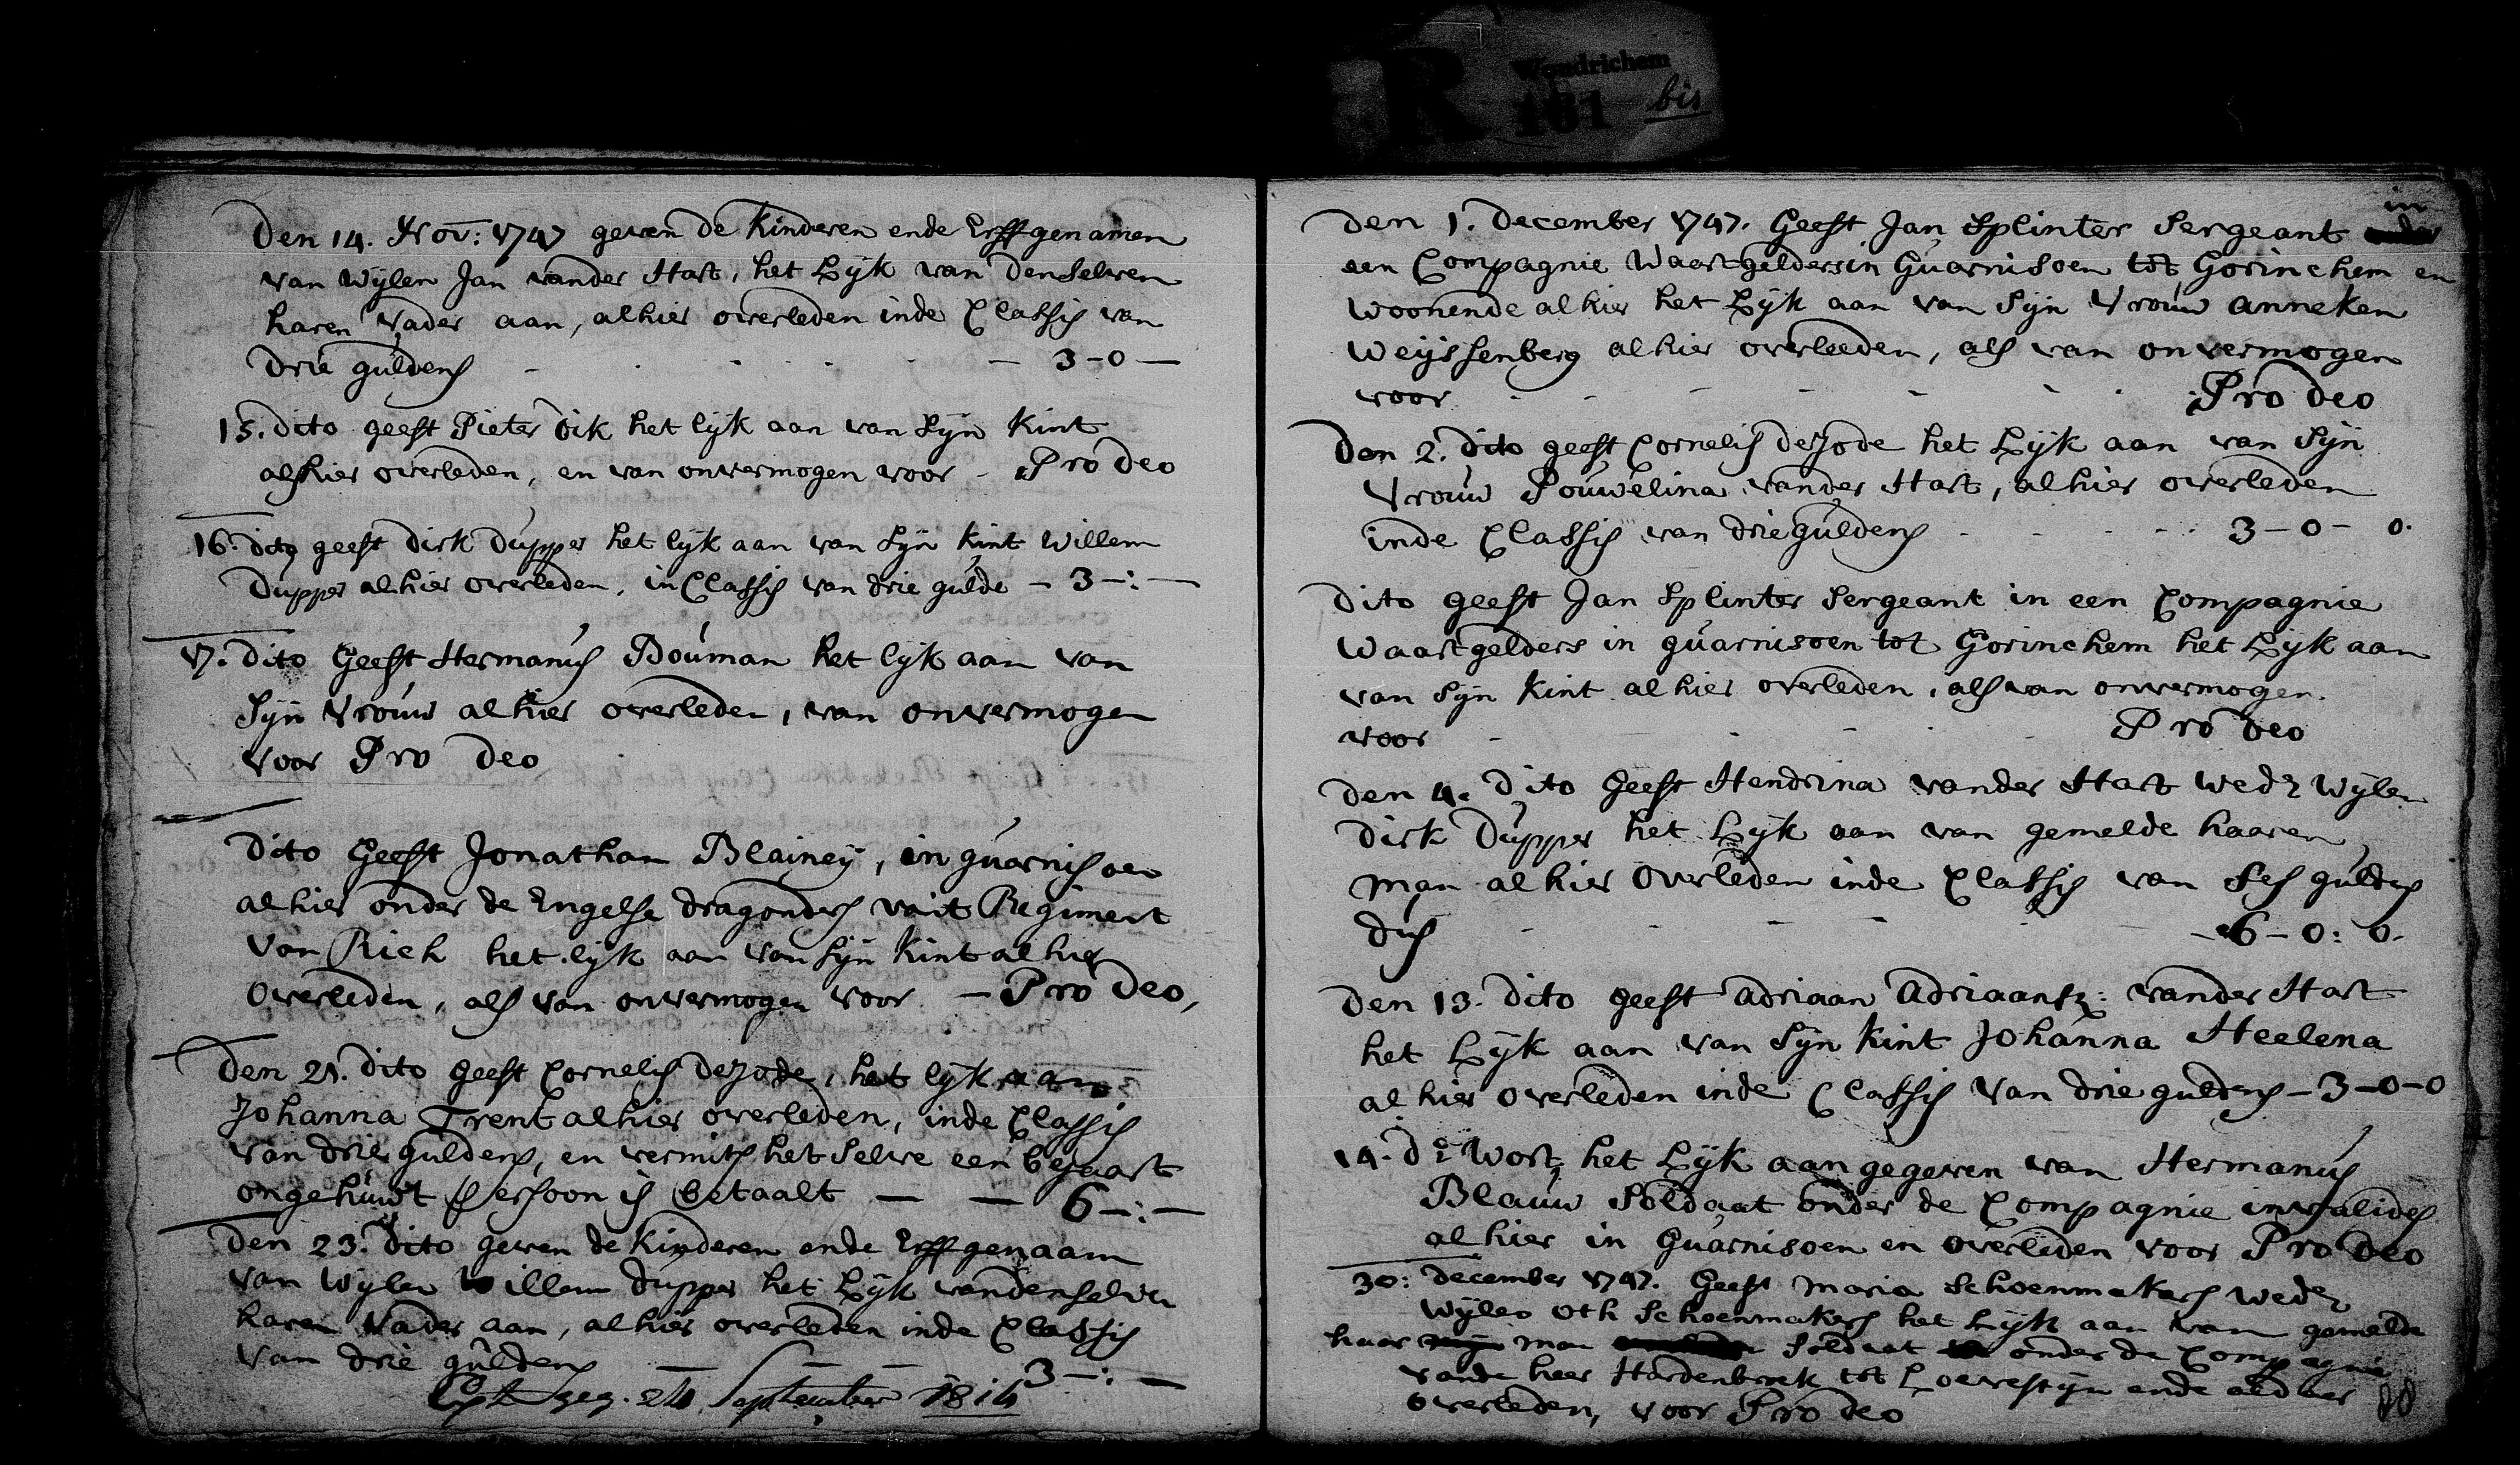 R Woudrichem
181 bis
Den 14. Nov: 1747 geven de kinderen ende Erffgenamen
van Wijlen Jan vander Hart, het Lijk van denselven
haren Vader aan, alhier overleden inde Classis van
drie guldens - - - - 3-0-
15. dito geeft Pieter Dik het lijk aan van Sijn kint
alhier overleden, en van onvermogen voor - Pro Deo
16. dito geeft Dirk Dupper het lijk aan van Sijn kint Willem
Dupper alhier overleden, in Classis van drie gulde - 3-:-
17. dito Geeft Hermanus Bouman het lijk aan van
Sijn Vrouw alhier overleden, van onvermogen
voor Pro Deo
Dito Geeft Jonathan Blainey, in guarnisoen
alhier onder de Engelse dragonders vant Regiment
van Rich het lijk aan van Sijn kint alhier
Overleden, als van onvermogen voor - Pro Deo,
Den 21. dito geeft Cornelis de Jode, het lijk aan
Johanna Trent alhier overleden, inde Classis
van drie guldens, en vermits het selve een bejaart
ongehuwt persoon is betaalt - - 6-:-
Den 23. dito geven de kinderen ende Erffgenaam
van Wijlen Willem Dupper het Lijk van denselven
haren Vader aan, alhier overleden inde Classis
van drie guldens - - - 3-:-
24 September 1814
Den 1. December 1747. Geeft Jan Splinter Sergeant in
een Compagnie Waartgelders in Guarnisoen tot Gorinchem en
woonende alhier het Lijk aan van Sijn Vrouw anneken
Weijssenberg alhier overleeden, als van onvermogen
voor - - - - - Pro Deo
Den 2. dito geeft Cornelis de Jode het Lijk aan van Sijn
Vrouw Pouwelina vander Hart, alhier overleden
inde Classis van drie guldens - - - 3-0-0.
Dito geeft Jan Splinter Sergeant in een Compagnie
Waartgelders in guarnisoen tot Gorinchem het Lijk aan
van Sijn kint alhier overleden, als van onvermogen
voor - - - - Pro Deo
Den 4. Dito Geeft Hendrina vander Hart Wedr Wijlen
Dirk Dupper het Lijk aan van gemelde haaren
man alhier Overleden inde Classis van Ses guldens
dus - - - - 6-0:0.
Den 13. Dito geeft Adriaan Adriaansz: vander Hart
het Lijk aan van Sijn kint Johanna Heelena
alhier overleden inde Classis van drie guldens - 3-0-0
14. do Wort het Lijk aangegeven van Hermanus
Blauw Soldaat onder de Compagnie invalides
alhier in Guarnisoen en overleden voor Pro Deo
30: December 1747. Geeft Maria Schoenmakers Wedr
Wijlen Oth Schoenmakers het Lijk aan van gemelde
haar man Soldaat onder de Compagnie
vande heer Hardenbroek tot Loevesteijn ende aldaar
overleden, voor Pro Deo